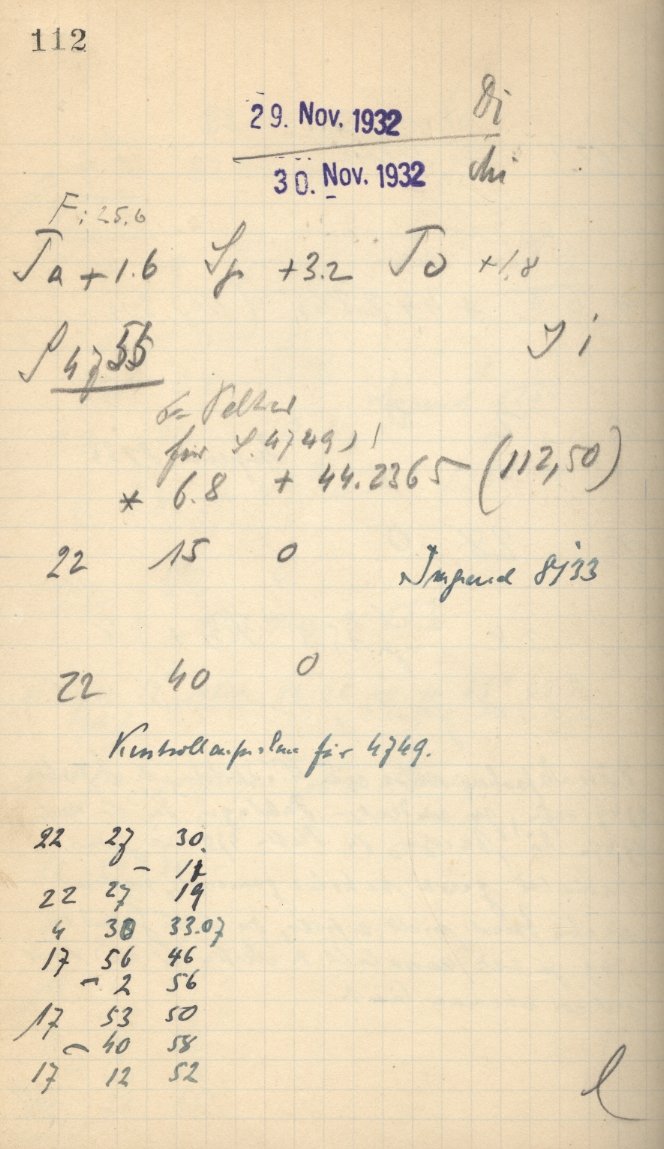 112
29. Nov. 1932 Di
30. Nov. 1932 Mi
F: 25.6
Ta + 1.6 Sp + 3.2 To + 1.8
S 4755
für S. 4749)!
* 6.8 + 44.2365 (112,50)
22 15 0
22 40 0
Kontrollaufnahme für 4749.
22 27 30.
22 27 19
4 30 33.07
17 56 46
- 2 56
17 53 50
- 40 58
17 12 52